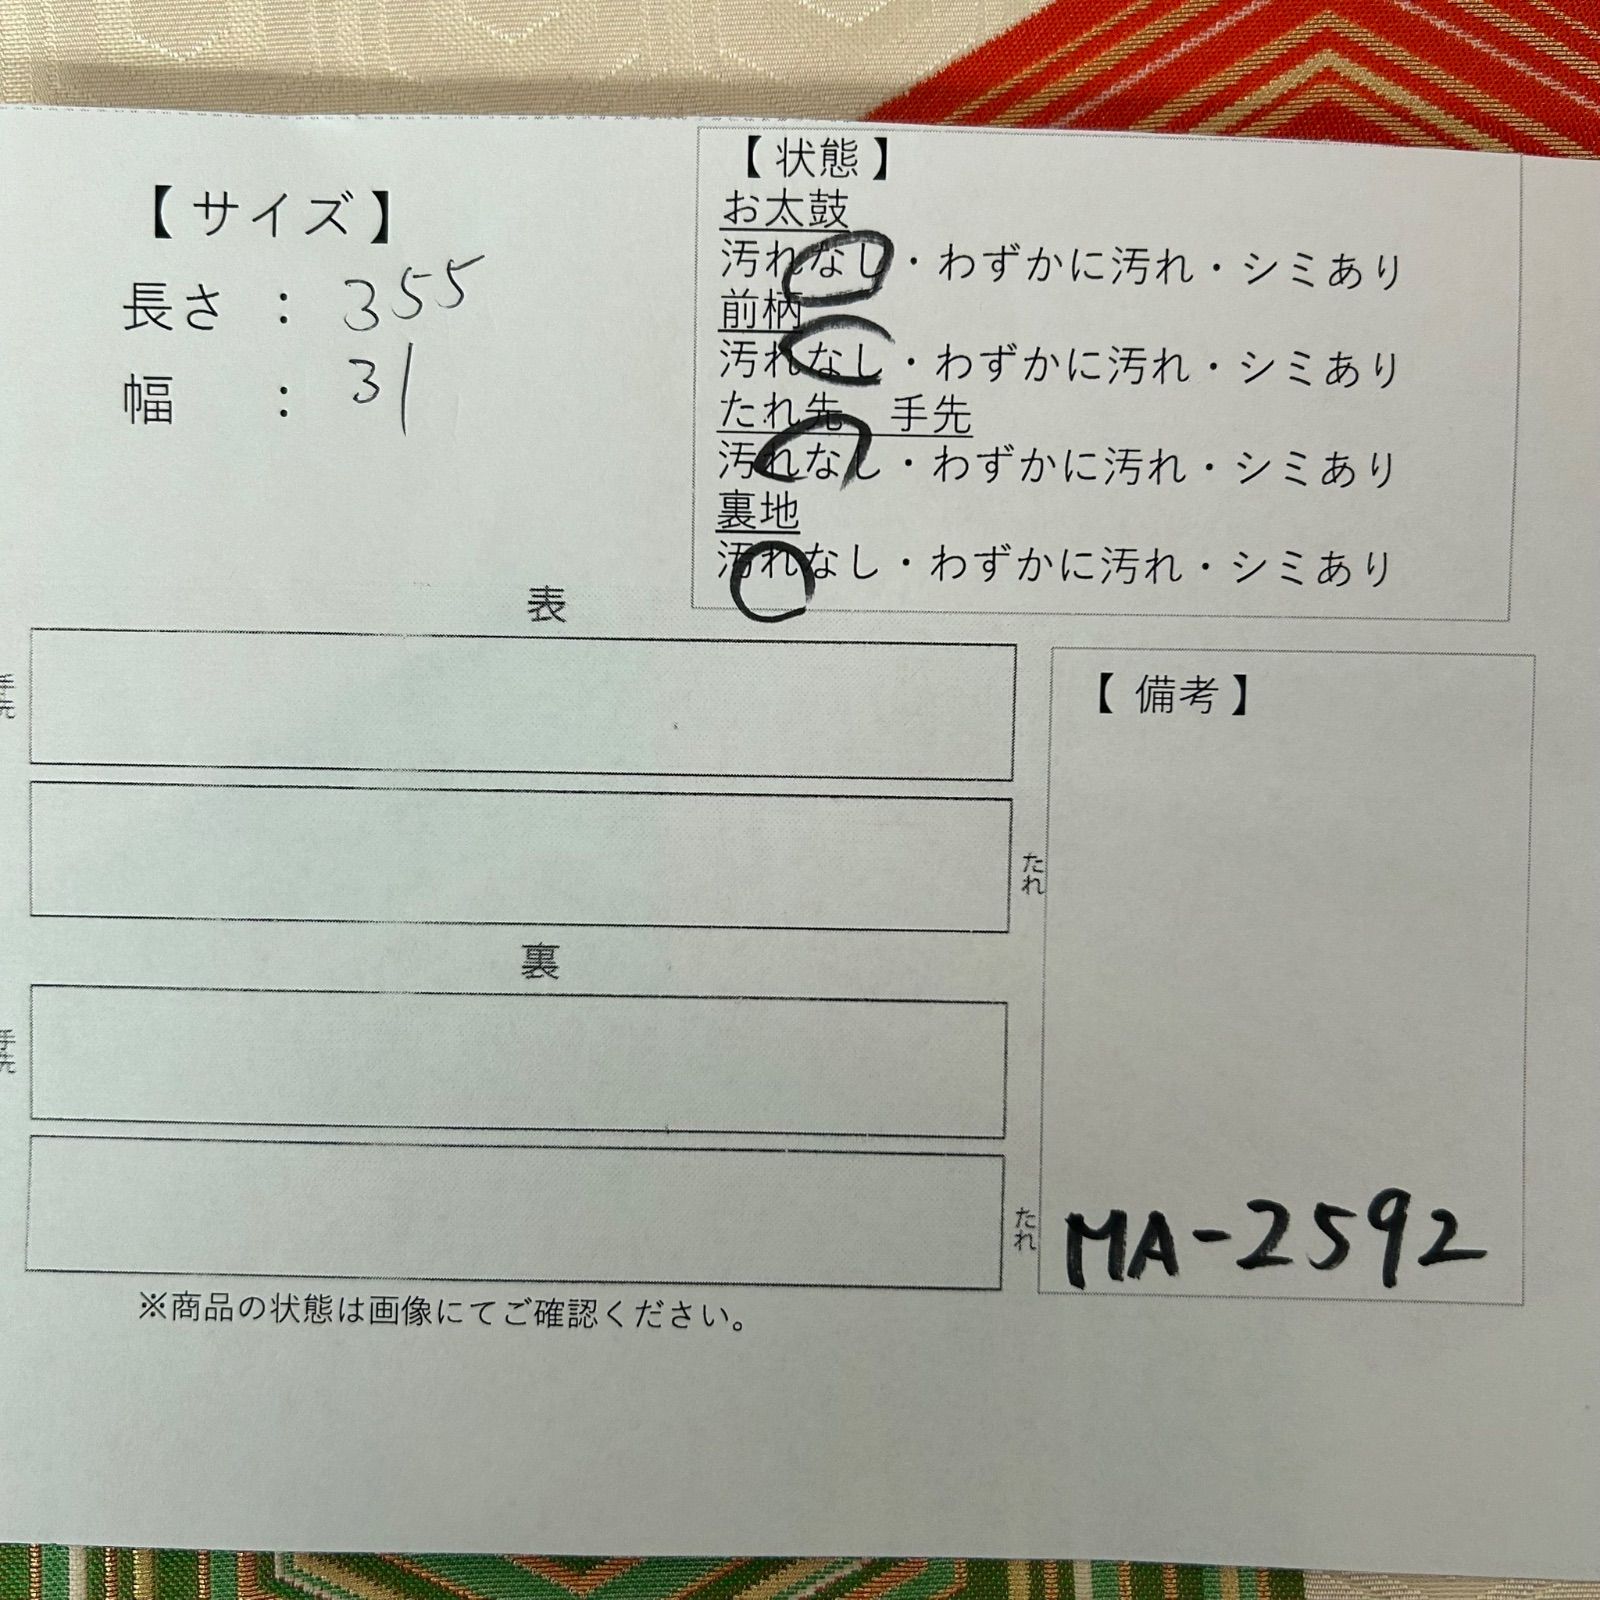 【サイズ】
長さ : 355
幅 : 31
【状態】
お太鼓
汚れなし・わずかに汚れ・シミあり
前柄
汚れなし・わずかに汚れ・シミあり
たれ先 手先
汚れなし・わずかに汚れ・シミあり
裏地
汚れなし・わずかに汚れ・シミあり
表
手先
たれ
裏
手先
たれ
【備考】
MA-2592
※商品の状態は画像にてご確認ください。